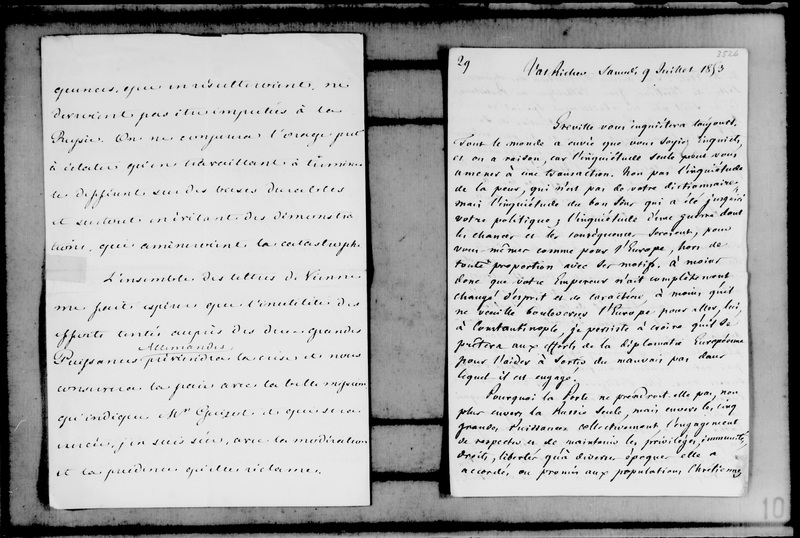 quences, que en résulteraient, ne
devraient pas être imputées à la
Russie. On ne conjurera l'orage prêt
à éclater qu'en travaillant à terminer
le différent sur des bases durables
et surtout en évitant des démonstra
tions, qui amèneraient la catastrophe.
L'ensemble des lettres de Vienne
me fait espérer que l'inutilité des
efforts tentés auprès des deux grandes
Puissances Allemandes préviendra la crise et nous
conservera la paix avec la belle mission
qu'indique Mr Guizot et qui sera
exercée, j'en suis sûre, avec la modération
et la prudence qu'elle réclame.
3526
29 Val Richer Samedi 9 Juillet 1853
Greville vous inquiétera toujours.
Tout le monde a envie que vous soyez inquiets,
et on a raison, car l'inquiétude seule peut vous
amener à une transaction. Non pas l'inquiétude
de la peur, qui n'est pas de votre dictionnaire,
mais l'inquiétude du bon sens qui a été jusqu'ici
votre politique; l'inquiétude d'une guerre dont
les chances et les conséquences seraient, pour
vous mêmes comme pour l'Europe, hors de
toute proportion avec ses motifs. à moins
donc que votre Empereur n'ait complètement
changé d'esprit et de caractère, à moins qu'il
ne veuille bouleverser l'Europe pour aller, lui,
à Constantinople, je persiste à croire qu'il se
prêtera aux efforts de la diplomatie Européenne
pour l'aider à sortir du mauvais pas dans
lequel il est engagé.
Pourquoi la Porte ne prendrait elle pas, non
plus envers la Russie seule, mais envers les cinq
grandes Puissances collectivement, l'engagement
de respecter et de maintenir les privilèges, immunités,
droits, libertés qu'à diverses époques elle a
accordés ou promis aux populations Chrétiennes
10